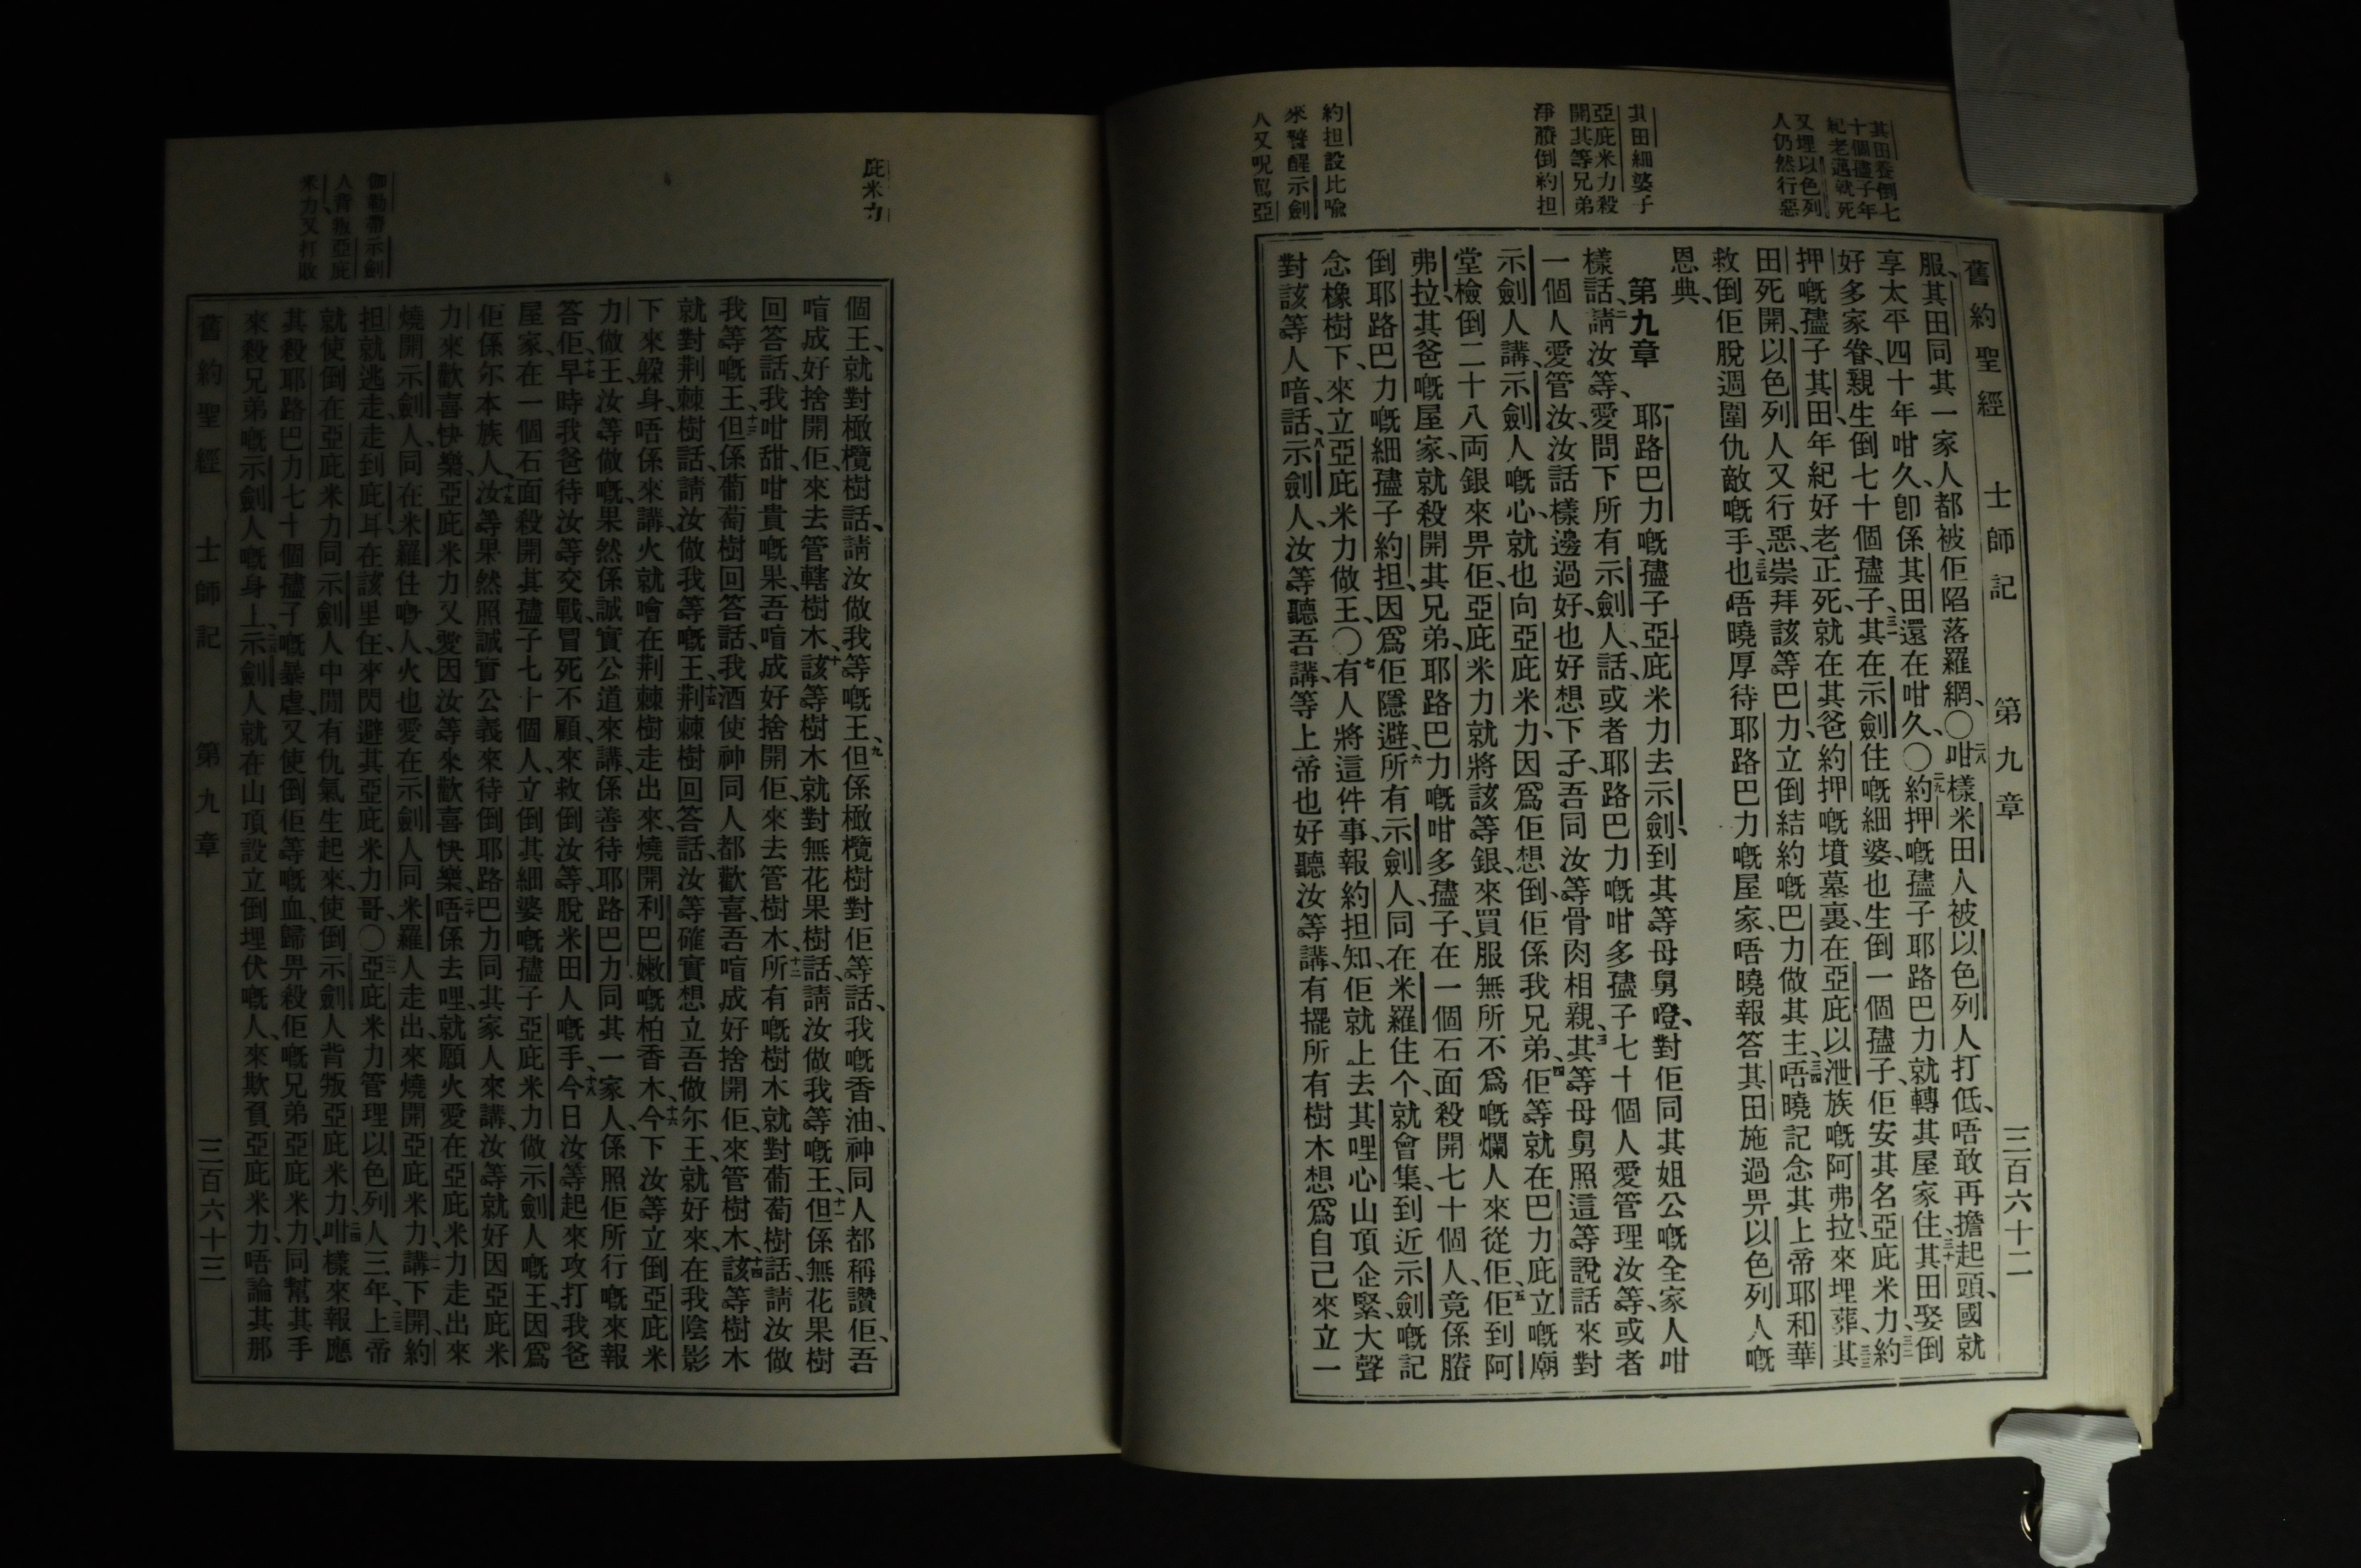 其田養倒七
十個孻子年
紀老邁就死
又埋以色列
人仍然行惡
其田細婆子
亞庇米力殺
開其等兄弟
淨賸倒約担
約担設比喩
來警醒示劍
人又呪罵亞
舊約聖經 士師記 第九章 三百六十二
服、其田同其一家人都被佢陷落羅網、〇二八咁樣米田人被以色列人打低、唔敢再擔起頭、國就
享太平四十年咁久、卽係其田還在咁久、〇二九約押嘅孻子耶路巴力就轉其屋家住、三十其田娶倒
好多家眷、親生倒七十個孻子、三一其在示劍住嘅細婆、也生倒一個孻子、佢安其名亞庇米力、三二約
押嘅孻子其田、年紀好老正死、就在其爸約押嘅墳墓裏、在亞庇以泄族嘅阿弗拉來埋葬、三三其
田死開、以色列人又行惡、崇拜該等巴力、立倒結約嘅巴力做其主、三四唔曉記念其上帝耶和華
救倒佢脫週圍仇敵嘅手、三五也唔曉厚待耶路巴力嘅屋家、唔曉報答其田施過畀以色列人嘅
恩典、
第九章 一耶路巴力嘅孻子亞庇米力去示劍、到其等母舅嗱、對佢同其姐公嘅全家人咁
樣話、二請汝等、愛問下所有示劍人、話、或者耶路巴力嘅咁多孻子七十個人愛管理汝等、或者
一個人愛管汝、汝話樣邊過好、也好想下子、吾同汝等骨肉相親、三其等母舅照這等說話來對
示劍人講、示劍人嘅心、就也向亞庇米力、因爲佢想倒、佢係我兄弟、四佢等就在巴力庇立嘅廟
堂檢倒二十八両銀來畀佢、亞庇米力就將該等銀、來買服無所不爲嘅爛人來從佢、五佢到阿
弗拉、其爸嘅屋家、就殺開其兄弟、耶路巴力嘅咁多孻子、在一個石面殺開七十個人、竟係賸
倒耶路巴力嘅細孻子約担、因爲佢隱避、六所有示劍人、同在米羅住个、就會集、到近示劍嘅記
念橡樹下、來立亞庇米力做王、〇七有人將這件事、報約担知、佢就上去其哩心山頂企緊、大聲
對該等人喑、話、八示劍人、汝等聽吾講、等上帝也好聽汝等講、有擺所有樹木想爲自己來立一
庇米力
伽勒帶示劍
人背叛亞庇
米力又打敗
個王、就對橄欖樹話、請汝做我等嘅王、九但係橄欖樹對佢等話、我嘅香油、神同人都稱讚佢、吾
喑成好捨開佢、來去管轄樹木、十該等樹木就對無花果樹話、請汝做我等嘅王、十一但係無花果樹
回答話、我咁甜、咁貴嘅果、吾喑成好捨開佢、來去管樹木、十二所有嘅樹木就對葡萄樹話、請汝做
我等嘅王、十三但係葡萄樹回答話、我酒使神同人都歡喜、吾喑成好捨開佢、來管樹木、十四該等樹木
就對荆棘樹話、請汝做我等嘅王、十五荆棘樹回答話、汝等確實想立吾做尔王、就好來、在我陰影
下來躲身、唔係來講、火就噲在荆棘樹走出來、燒開利巴嫩嘅柏香木、十六今下汝等立倒亞庇米
力做王、汝等做嘅、果然係誠實公道來講、係善待耶路巴力同其一家人、係照佢所行嘅來報
答佢、十七早時我爸待汝等交戰、冒死不顧、來救倒汝等、脫米田人嘅手、十八今日汝等起來攻打我爸
屋家、在一個石面殺開其孻子七十個人、立倒其細婆嘅孻子亞庇米力做示劍人嘅王、因爲
佢係尔本族人、十九汝等果然照誠實公義來待倒耶路巴力同其家人來講、汝等就好因亞庇米
力來歡喜快樂、亞庇米力又愛因汝等來歡喜快樂、二十唔係去哩、就願火愛在亞庇米力走出來
燒開示劍人、同在米羅住嘅人、火也愛在示劍人同米羅人走出來燒開亞庇米力、二一講下開、約
担就逃走、走到庇耳在該里住、來閃避其亞庇米力哥、〇二二亞庇米力管理以色列人三年、二三上帝
就使倒在亞庇米力同示劍人中間、有仇氣生起來、使倒示劍人背叛亞庇米力、二四咁樣來報應
其殺耶路巴力七十個孻子嘅暴虐、又使倒佢等嘅血、歸畀殺佢嘅兄弟亞庇米力、同幫其手
來殺兄弟嘅示劍人嘅身上、二五示劍人就在山頂設立倒埋伏嘅人、來欺負亞庇米力、唔論其那
舊約聖經 士師記 第九章 三百六十三